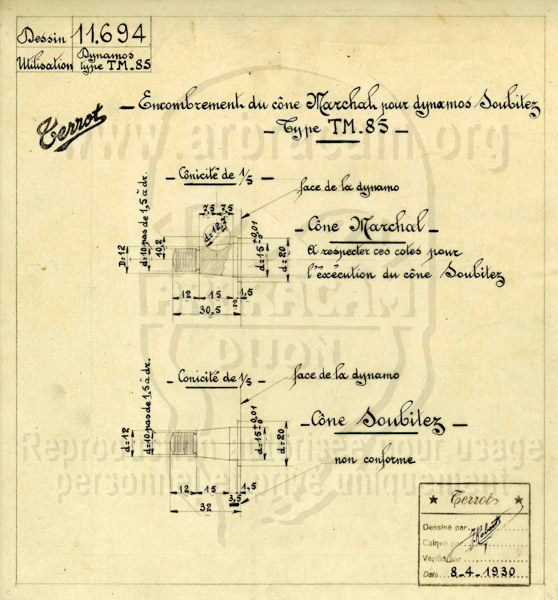 Dessin 11.694
Utilisation Dynamos
type TM.85
Terrot
— Encombrement du cône Marchal pour dynamos Soubitez
— Type TM.85 —
www.arbracam.org
— Cônicité de 1/5
face de la dynamo
7,5 7,5
d=10 pas de 1,5 à dr.
10,2
D=12
d=15 +0,01 -0
d=20
— Cône Marchal —
A respecter ces cotes pour
l'éxécution du cône Soubitez
12 15 1,5
30,5
ARBRACAM
DIJON
— Conicité de 1/5 —
face de la dynamo
d=10 pas de 1,5 à dr.
d=12
d=15 +0,01 -0
d=20
— Cône Soubitez —
non conforme
Reproduction autorisée pour usage
personnel et privé uniquement
12 15 1,5
3,5
32
★ Terrot ★
Dessiné par
Calqué par
Vérifié par
Date 8-4-1930